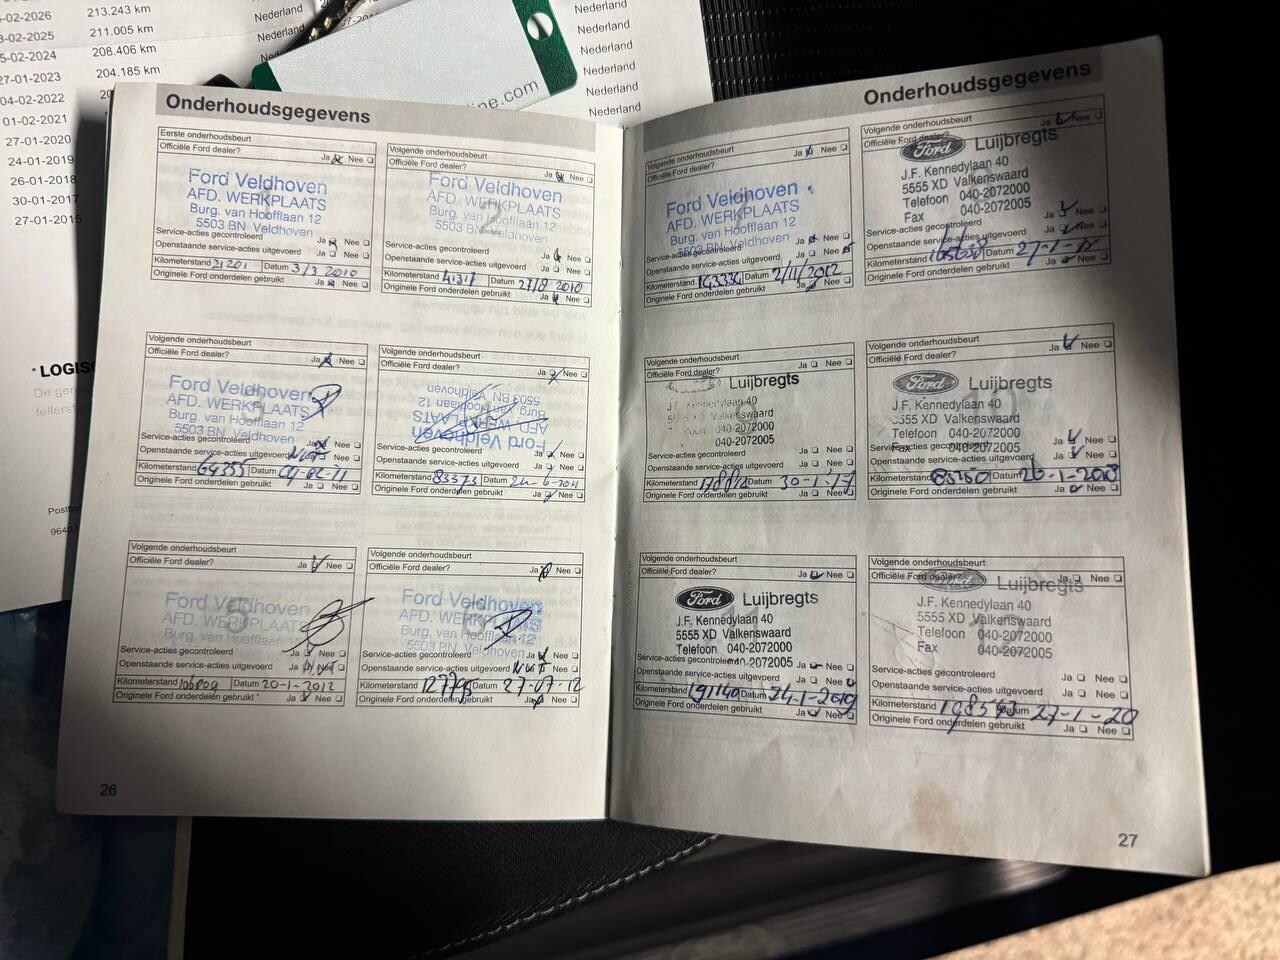 -02-2026 213.243 km Nederland
-02-2025 211.005 km Nederland
-02-2024 208.406 km
27-01-2023 204.185 km
04-02-2022
01-02-2021
27-01-2020
24-01-2019
26-01-2018
30-01-2017
27-01-2015
Nederland
Nederland
Nederland
Nederland
Nederland
ine.com
* LOGIS
De ger
tellerst
Postbu
9640
Onderhoudsgegevens
Eerste onderhoudsbeurt
Officiële Ford dealer? Ja Nee
Ford Veldhoven
AFD. WERKPLAATS
Burg. van Hoofflaan 12
5503 BN Veldhoven
Service-acties gecontroleerd Ja Nee
Openstaande service-acties uitgevoerd Ja Nee
Kilometerstand 21201 Datum 3/3 2010
Originele Ford onderdelen gebruikt Ja Nee
Volgende onderhoudsbeurt
Officiële Ford dealer? Ja Nee
2
Ford Veldhoven
AFD. WERKPLAATS
Burg. van Hoofflaan 12
5503 BN Veldhoven
Service-acties gecontroleerd Ja Nee
Openstaande service-acties uitgevoerd Ja Nee
Kilometerstand 41317 Datum 27/8 2010
Originele Ford onderdelen gebruikt Ja Nee
Volgende onderhoudsbeurt
Officiële Ford dealer? Ja Nee
Ford Veldhoven
AFD. WERKPLAATS
Burg. van Hoofflaan 12
5503 BN Veldhoven
Service-acties gecontroleerd Ja Nee
Openstaande service-acties uitgevoerd Nee
Kilometerstand 64355 Datum
Originele Ford onderdelen gebruikt Ja Nee
Volgende onderhoudsbeurt
Officiële Ford dealer? Ja Nee
Ford Veldhoven
AFD. WERKPLAATS
Burg. van Hoofflaan 12
5503 BN Veldhoven
Service-acties gecontroleerd Ja Nee
Openstaande service-acties uitgevoerd Ja Nee
Kilometerstand 83373 Datum 24-6-2011
Originele Ford onderdelen gebruikt Ja Nee
Volgende onderhoudsbeurt
Officiële Ford dealer? Ja Nee
5
Ford Veldhoven
AFD. WERKPLAATS
Burg. van Hoofflaan 12
Service-acties gecontroleerd Ja Nee
Openstaande service-acties uitgevoerd Ja
Kilometerstand 106809 Datum 20-1-2012
Originele Ford onderdelen gebruikt Ja Nee
Volgende onderhoudsbeurt
Officiële Ford dealer? Ja Nee
Ford Veldhoven
AFD. WERKPLAATS
Burg. van Hoofflaan 12
5503 BN Veldhoven
Service-acties gecontroleerd Ja Nee
Openstaande service-acties uitgevoerd Nee
Kilometerstand Datum 27-07-12
Originele Ford onderdelen gebruikt Ja Nee
26
Onderhoudsgegevens
Volgende onderhoudsbeurt
Officiële Ford dealer? Ja Nee
Ford Veldhoven
AFD. WERKPLAATS
Burg. van Hoofflaan 12
5503 BN Veldhoven
Service-acties gecontroleerd Ja Nee
Openstaande service-acties uitgevoerd Ja Nee
Kilometerstand 143334 Datum 2/11/2012
Originele Ford onderdelen gebruikt Ja Nee
Volgende onderhoudsbeurt Ja Nee
Officiële Ford dealer?
Ford Luijbregts
J.F. Kennedylaan 40
5555 XD Valkenswaard
Telefoon 040-2072000
Fax 040-2072005
Service-acties gecontroleerd Ja Nee
Openstaande service-acties uitgevoerd Ja Nee
Kilometerstand Datum 27-1-15
Originele Ford onderdelen gebruikt Ja Nee
Volgende onderhoudsbeurt
Officiële Ford dealer? Ja Nee
Luijbregts
J.F. Kennedylaan 40
Valkenswaard
040-2072000
040-2072005
Service-acties gecontroleerd
Openstaande service-acties uitgevoerd Ja Nee
Kilometerstand Datum 30-1-17
Originele Ford onderdelen gebruikt Ja Nee
Volgende onderhoudsbeurt
Officiële Ford dealer? Ja Nee
10
Ford Luijbregts
J.F. Kennedylaan 40
5555 XD Valkenswaard
Telefoon 040-2072000
Fax 040-2072005
Service-acties gecontroleerd Ja Nee
Openstaande service-acties uitgevoerd Ja Nee
Kilometerstand Datum 26-1-2018
Originele Ford onderdelen gebruikt Ja Nee
Volgende onderhoudsbeurt
Officiële Ford dealer? Ja Nee
Ford Luijbregts
J.F. Kennedylaan 40
5555 XD Valkenswaard
Telefoon 040-2072000
040-2072005
Service-acties gecontroleerd Ja Nee
Openstaande service-acties uitgevoerd Ja Nee
Kilometerstand 191140 Datum 24-1-2019
Originele Ford onderdelen gebruikt Ja Nee
Volgende onderhoudsbeurt
Officiële Ford dealer? Ja Nee
Ford Luijbregts
J.F. Kennedylaan 40
5555 XD Valkenswaard
Telefoon 040-2072000
Fax 040-2072005
Service-acties gecontroleerd Ja Nee
Openstaande service-acties uitgevoerd Ja Nee
Kilometerstand Datum 27-1-20
Originele Ford onderdelen gebruikt Ja Nee
27